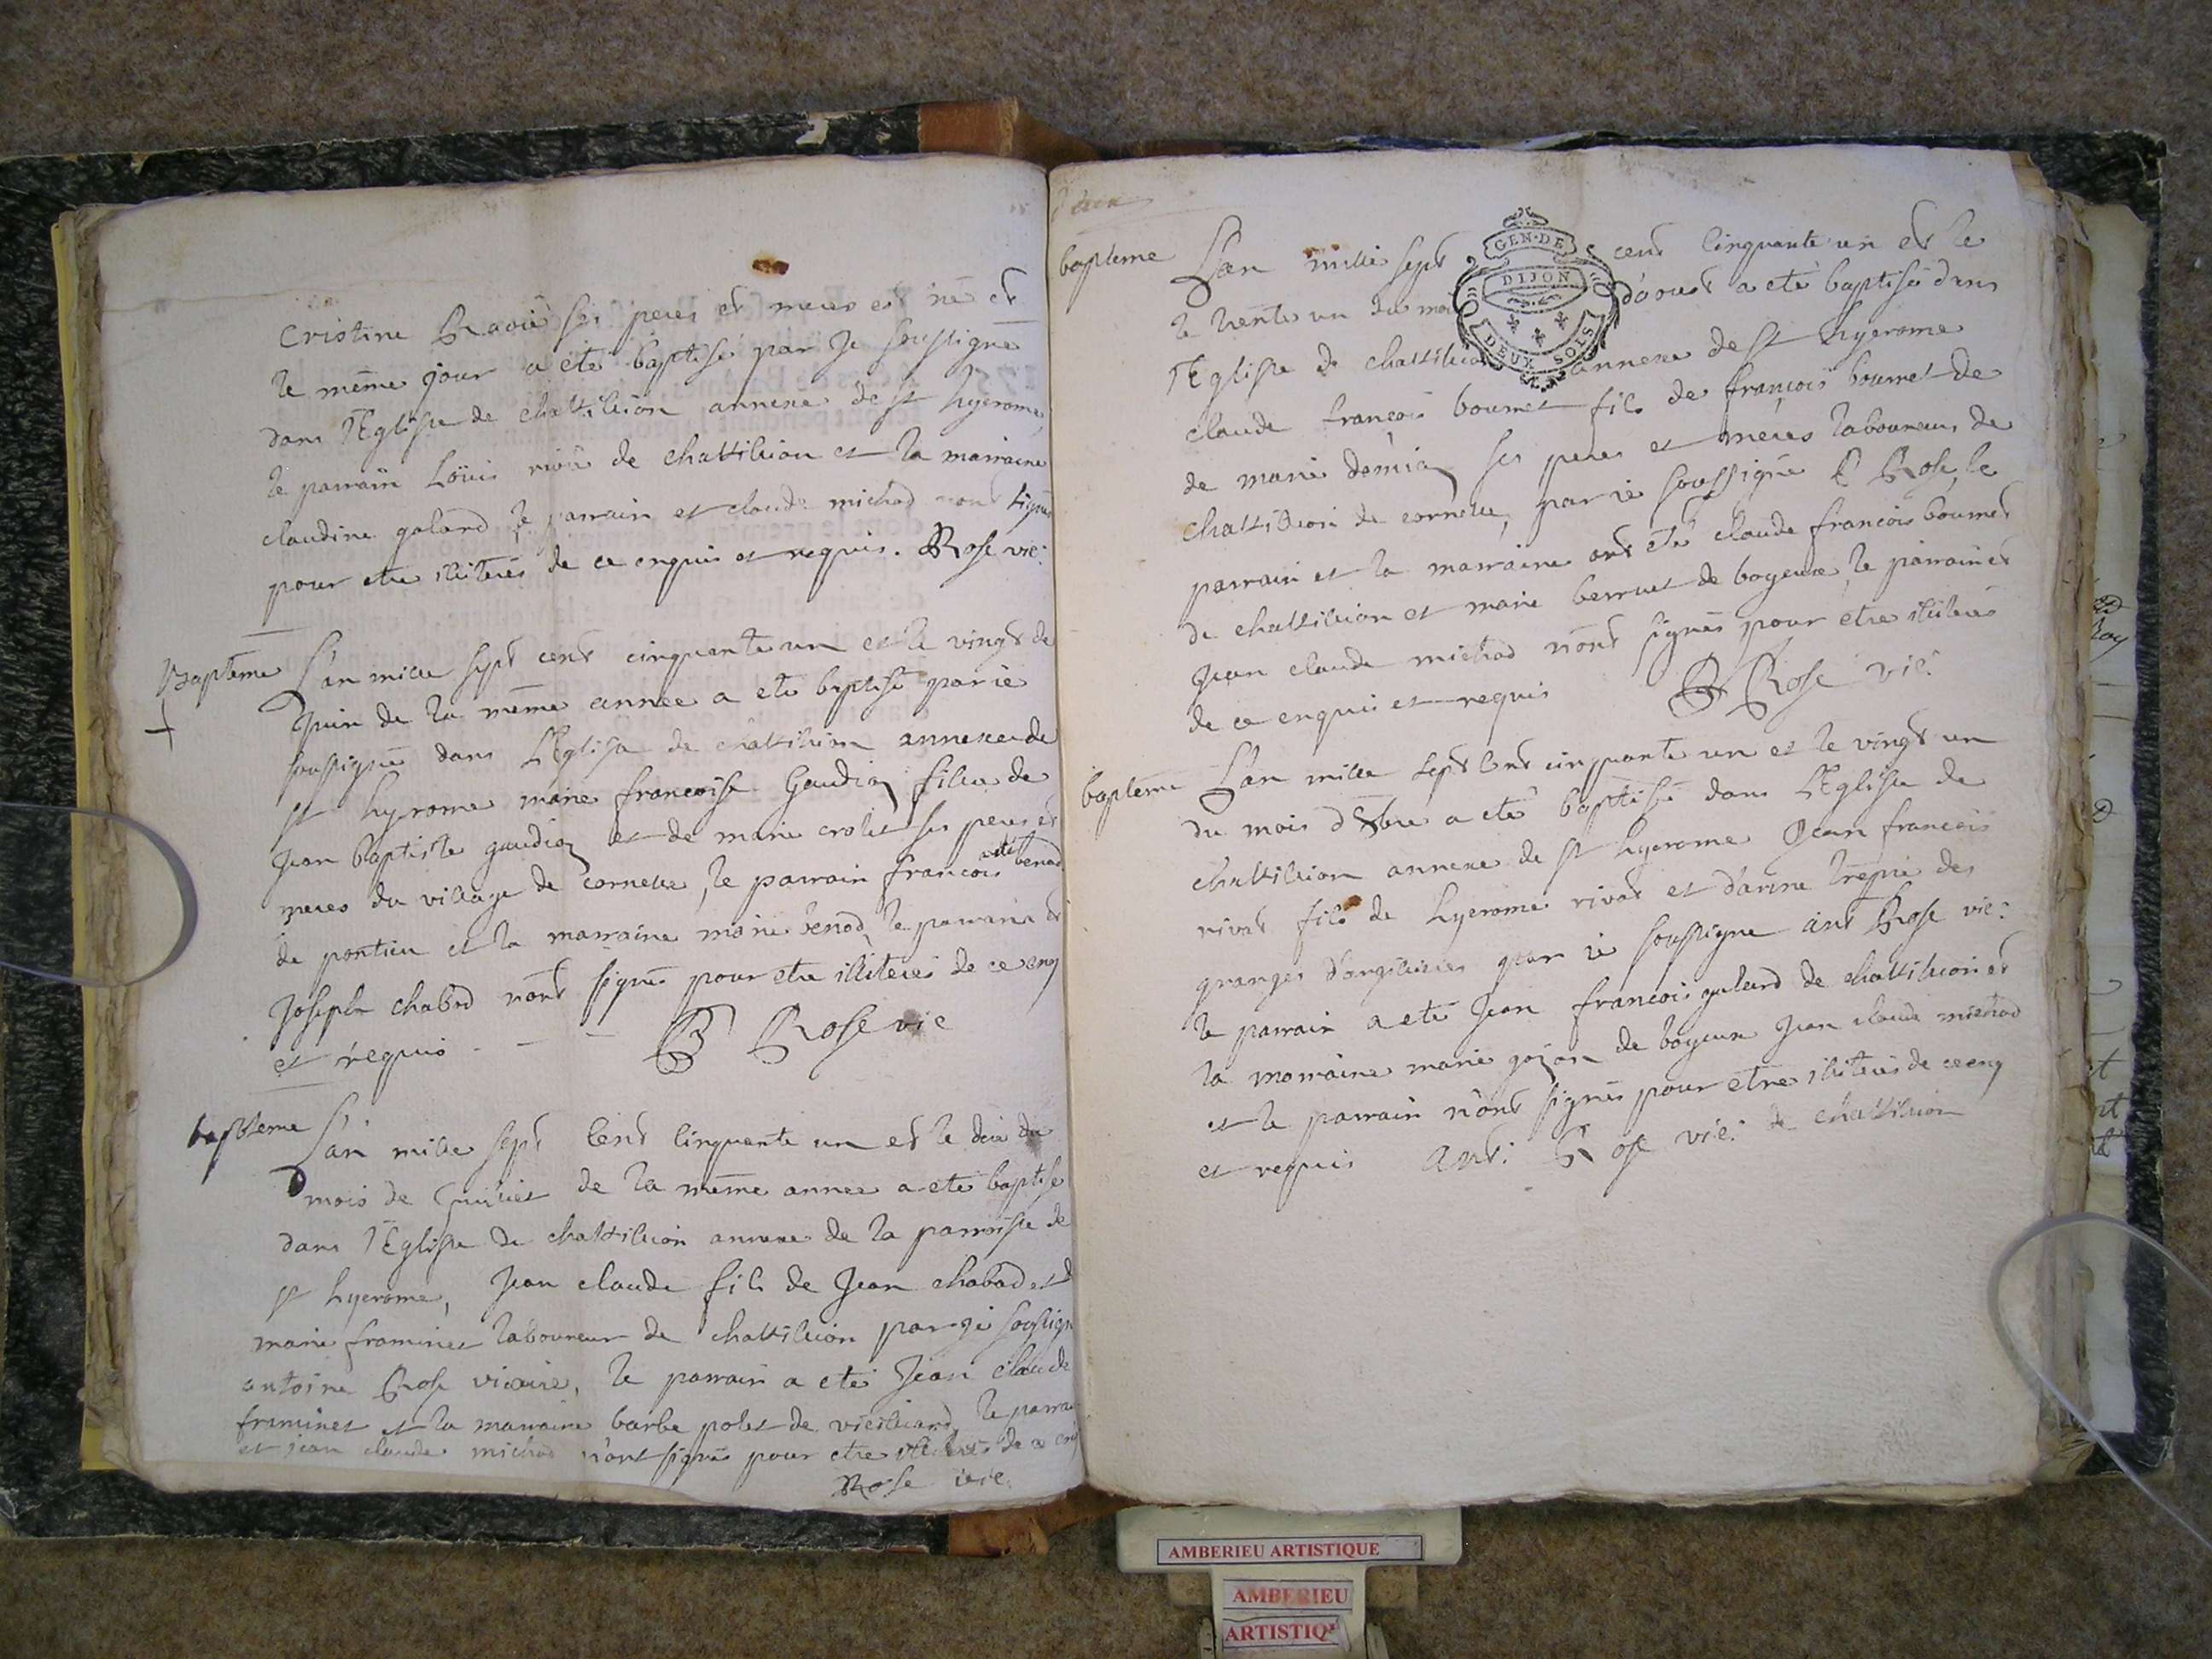 Cristine Ravié ses peres et meres est né et
le même jour a eté baptisé par Je soussigné
dans l'Eglisse de chattillion annexe de st hyerome
le parrain Loüis de chattillion et la marraine
claudine galand le parrain et claude michod nont signés
pour etre illiterés de ce enquis et requis. Rose vic:
Baptême L'an mille sept cent cinquante un et le vingt de
Juin de la même annee a eté baptisé par ie
soussigné dans L'Eglise de chattillion annexe de
st hyrome marie francoise Gaudioz fillie de
Jean baptiste gaudioz et de marie crolet ses peres et
meres du village de cornelle, le parrain francois benod
de pontieu et la marraine marie benod, le parrain et
Joseph chabod nont signés pour etre illiterés de ce enq
et requis - - - B Rose vic
baptême L'an mille sept Cent Cinquante un et le deix du
mois de Juiliet de la même annee a eté baptisé
dans l'Eglisse de chattillion annexe de la parroisse de
st hyerome, Jean claude fils de Jean chabod et d
marie framinet laboureur de chattillion par je soussign
antoine Rose vicaire, le parrain a eté Jean claude
framinet et la marraine barbe polet de vieilliard le parra
et jean claude michod n'ont signés pour etre illiterés de ce enq
Rose vic.
bapteme L'an mille sept cent Cinquante un et le
le trente un du moi d'aoust a eté baptisé dans
l'Eglisse de chattillion annexe de st hyerome
claude francois bourret fils de francois bourret de
de marie demia ses peres et meres laboureur de
chattillion de cornelle, par ie soussigné Rose, le
parrain et la marraine ont eté claude francois bourret
de chattillion et marie berruet de boyeux le parrain et
Jean claude michod n'ont signés pour etre illiterés
de ce enquis et requis B Rose vic:
bapteme L'an mille sept Cent cinquante un et le vingt un
du mois d'8bre a eté baptisé dans L'Eglisse de
chattillion annexe de st hyerome Jean francois
rivat fils de hyerome rivat et d'anne des
granges d'argillieres par ie soussigne ant Rose vic:
le parrain a eté Jean francois galand de chattillion et
la marraine marie gojon de boyeux Jean claude michod
et le parrain n'ont signés pour etre illiterés de ce enq
et requis ant: Rose vic: de chattillion
GEN·DE
DIJON
DEUX SOLS
AMBERIEU ARTISTIQUE
AMBERIEU
ARTISTIQ